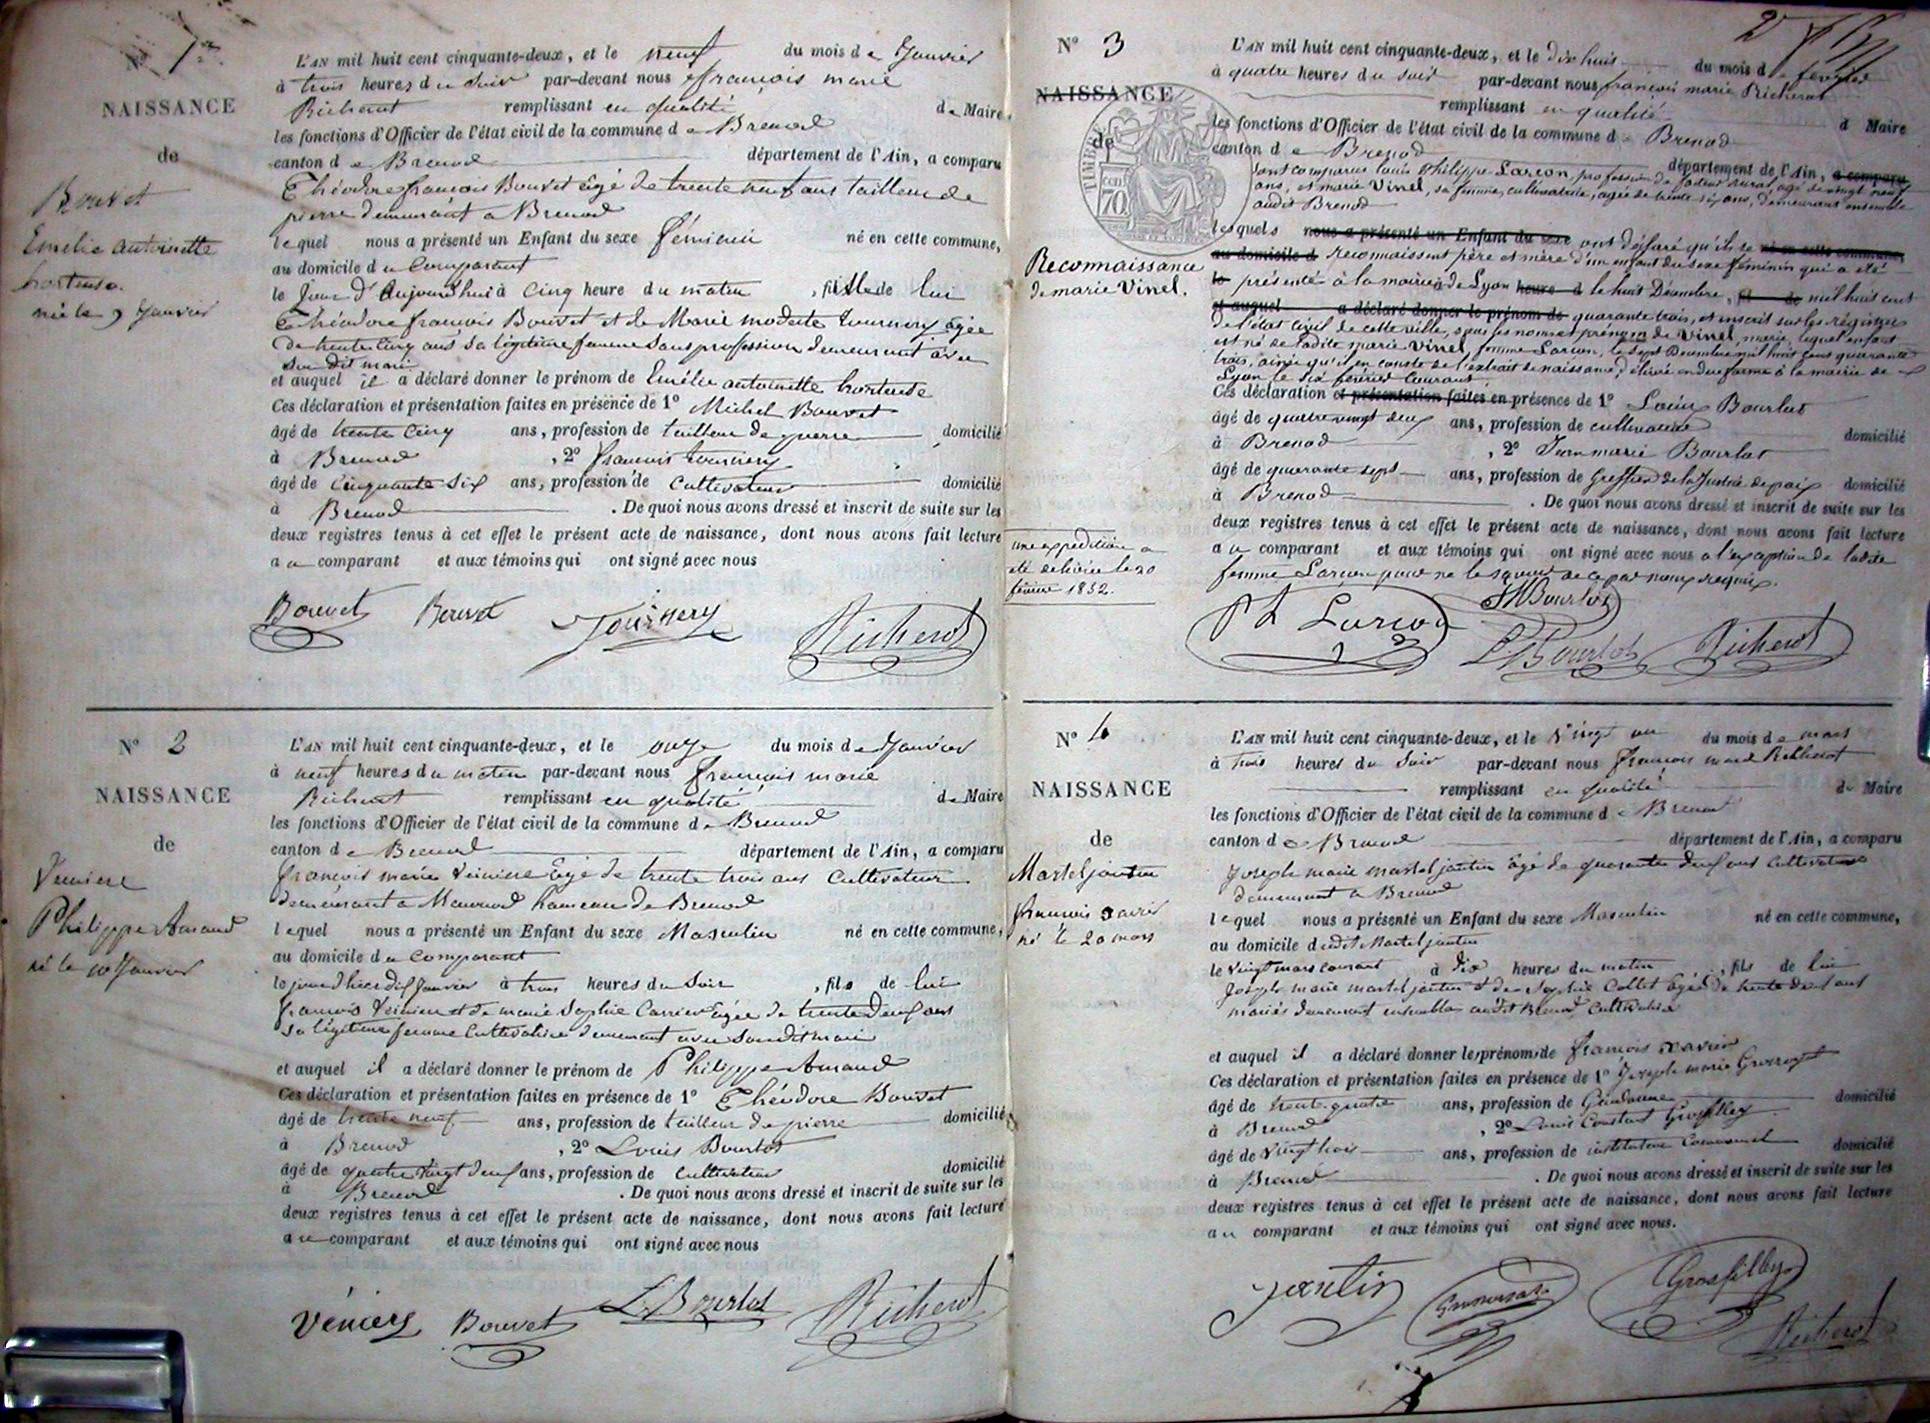 N° 1er
NAISSANCE
de
Bouvet
Emelie antoinette
hortense
née le 9 Janvier
L'AN mil huit cent cinquante-deux, et le neuf du mois de Janvier
à trois heures du soir par-devant nous françois marie
Richerot remplissant en qualité de Maire
les fonctions d'Officier de l'état civil de la commune de Brenod
canton de Brenod département de l'Ain, a comparu
Théodore françois Bouvet âgé de trente neuf ans tailleur de
pierre demeurant a Brenod
lequel nous a présenté un Enfant du sexe féminin né en cette commune,
au domicile du Comparant
le Jour d'Aujourd'hui à cinq heure du matin, fille de lui
Théodore françois Bouvet et de Marie modeste tournery âgée
de trente cinq ans sa légitime femme sans profession demeurant avec
son dit mari
et auquel il a déclaré donner le prénom de Emélie antoinette hortense
Ces déclaration et présentation faites en présence de 1° Michel Bouvet
âgé de trente cinq ans, profession de tailleur de pierre domicilié
à Brenod, 2° françois tournery
âgé de cinquante six ans, profession de Cultivateur domicilié
à Brenod. De quoi nous avons dressé et inscrit de suite sur les
deux registres tenus à cet effet le présent acte de naissance, dont nous avons fait lecture
au comparant et aux témoins qui ont signé avec nous
Bouvet Bouvet Tournery Richerot
N° 2
NAISSANCE
de
Veniere
Philippe Amand
né le 10 Janvier
L'AN mil huit cent cinquante-deux, et le onze du mois de Janvier
à neuf heures du matin par-devant nous françois marie
Richerot remplissant en qualité de Maire
les fonctions d'Officier de l'état civil de la commune de Brenod
canton de Brenod département de l'Ain, a comparu
françois marie Veniere âgé de trente trois ans Cultivateur
demeurant a Macconod hameau de Brenod
lequel nous a présenté un Enfant du sexe Masculin né en cette commune,
au domicile du Comparant
le jour d'hier dix Janvier à trois heures du soir, fils de lui
françois Veniere et de marie Sophie Carrier âgée de trente deux ans
sa légitime femme Cultivatrice demeurant avec son dit mari
et auquel il a déclaré donner le prénom de Philippe Amand
Ces déclaration et présentation faites en présence de 1° Théodore Bouvet
âgé de trente neuf ans, profession de tailleur de pierre domicilié
à Brenod, 2° Louis Bourlot
âgé de quatre vingt deux ans, profession de Cultivateur domicilié
à Brenod. De quoi nous avons dressé et inscrit de suite sur les
deux registres tenus à cet effet le présent acte de naissance, dont nous avons fait lecture
au comparant et aux témoins qui ont signé avec nous
Véniere Bouvet L. Bourlot Richerot
2
N° 3
NAISSANCE
de
TIMBRE
70
Reconnaissance
de marie Vinel.
une expédition a
été délivrée le 20
février 1852.
L'AN mil huit cent cinquante-deux, et le dix huit du mois de février
à quatre heures du soir par-devant nous françois marie Richerot
remplissant en qualité d Maire
les fonctions d'Officier de l'état civil de la commune de Brenod
canton de Brenod département de l'Ain, a comparu
sont comparus Louis Philippe Larcon, profession de facteur rural, agé de vingt neuf
ans, et marie Vinel, sa femme, cultivatrice, agée de trente six ans, demeurant ensemble
audit Brenod
lesquels nous a présenté un Enfant du sexe ont déclaré qu'ils se né en cette commune,
au domicile d reconnaissent père et mère d'un enfant du sexe féminin qui a été
le présenté à la mairie de Lyon heure d le huit Décembre, fil de mil huit cent
et auquel a déclaré donner le prénom de quarante trois, et inscrit sur les régistres
de l'état civil de cette ville, sous les noms et prénom de Vinel, marie, lequel enfant
est né de ladite marie Vinel, femme Larcon, le sept Décembre mil huit cent quarante
trois, ainsi qu'il en conste de l'extrait de naissance, délivré en due forme à la mairie de
Lyon le six février courant.
Ces déclaration et présentation faites en présence de 1° Louis Bourlot
âgé de quatre vingt deux ans, profession de cultivateur domicilié
à Brenod, 2° Jean marie Bourlot
âgé de quarante sept ans, profession de Greffier de la Justice de paix domicilié
à Brenod. De quoi nous avons dressé et inscrit de suite sur les
deux registres tenus à cet effet le présent acte de naissance, dont nous avons fait lecture
au comparant et aux témoins qui ont signé avec nous a l'exception de ladite
femme Larcon pour ne le savoir de ce par nous requis.
Ph Larcon JM Bourlot L. Bourlot Richerot
N° 4
NAISSANCE
de
Martel jantin
françois xavier
né le 20 mars
L'AN mil huit cent cinquante-deux, et le Vingt un du mois de mars
à trois heures du soir par-devant nous françois marie Richerot
remplissant en qualité de Maire
les fonctions d'Officier de l'état civil de la commune de Brenod
canton de Brenod département de l'Ain, a comparu
Joseph marie martel jantin âgé de quarante deux ans Cultivateur
demeurant a Brenod
lequel nous a présenté un Enfant du sexe Masculin né en cette commune,
au domicile dudit Martel jantin
le vingt mars courant à dix heures du matin, fils de lui
Joseph marie martel jantin et de Sophie Collet âgée de trente deux ans
mariés demeurant ensemble audit Brenod Cultivateurs
et auquel il a déclaré donner le prénom de françois xavier
Ces déclaration et présentation faites en présence de 1° Joseph marie
âgé de trente quatre ans, profession de Gendarme domicilié
à Brenod, 2° Louis Constant Grosfilley
âgé de vingt trois ans, profession de instituteur Communal domicilié
à Brenod. De quoi nous avons dressé et inscrit de suite sur les
deux registres tenus à cet effet le présent acte de naissance, dont nous avons fait lecture
au comparant et aux témoins qui ont signé avec nous.
Jantin Grosfilley Richerot